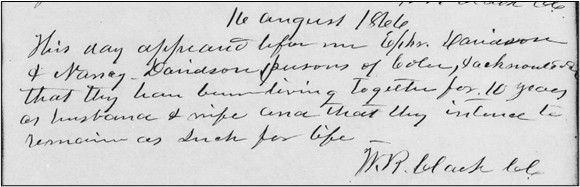 W R Black Clk
16 august 1866
This day appeard before me Ephr. Davidson
& Nancy Davidson persons of Color, & acknowledged
that they have been living together for 10 years
as husband & wife and that they intend to
remain as such for life
W. R. Black Clk